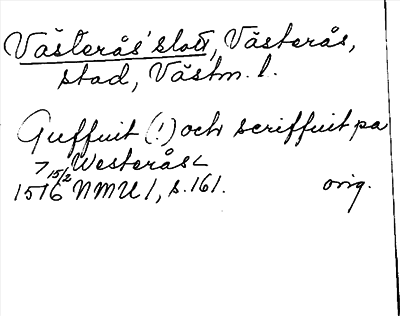 Västerås slott, Västerås,
stad, Västm. l.
Guffuit (!) och scriffuit pa
Westerås
1516 15/2 NMU 1, s. 161. orig.